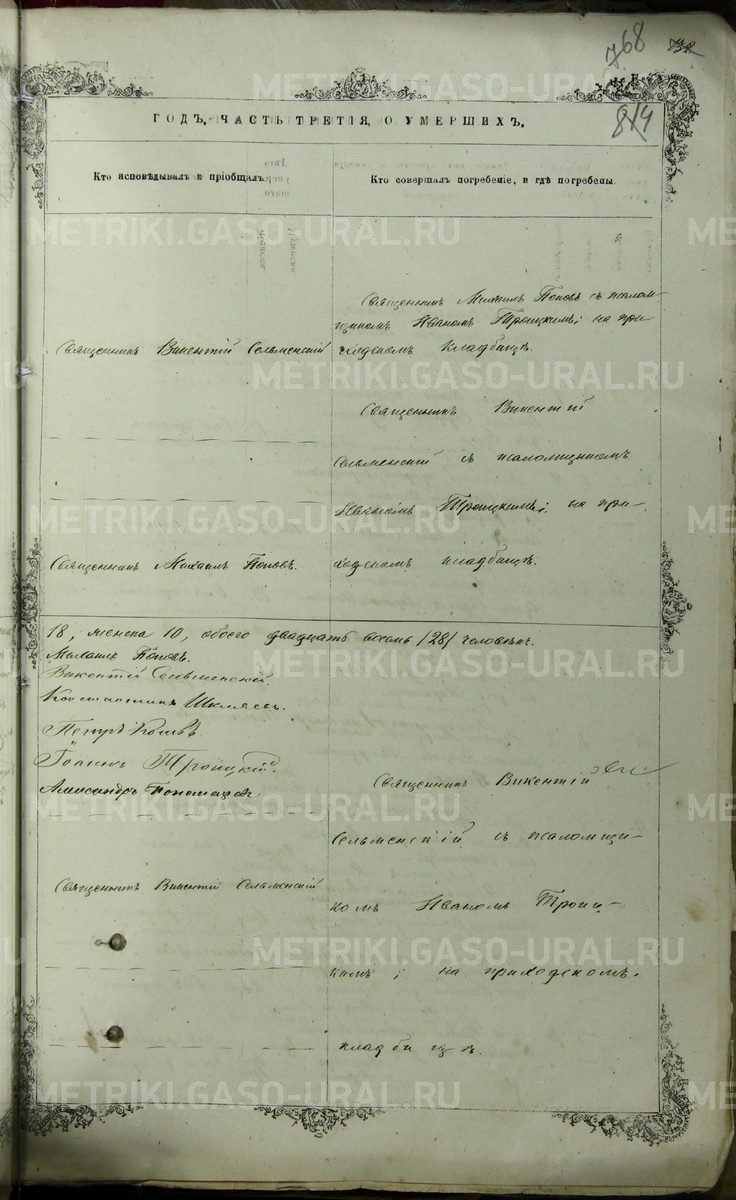 768
732
814
ГОДЪ, ЧАСТЬ ТРЕТІЯ, О УМЕРШИХЪ.
Кто исповѣдывалъ и пріобщалъ.
Кто совершалъ погребеніе, и гдѣ погребены.
Священникъ Викентій Сельменскій
Священникъ Михаилъ Поповъ съ псалом-
щикомъ Иваномъ Троицкимъ; на при-
ходскомъ кладбищѣ.
Священникъ Викентій
Сельменскій съ псаломщикомъ
Иваномъ Троицкимъ; на при-
ходскомъ кладбищѣ.
Священникъ Михаилъ Поповъ.
18, женска 10, обоего двадцать восемь /28/ человѣкъ.
Михаилъ Поповъ.
Викентій Сельменскій.
Константинъ Шкляевъ.
Петръ
Іоаннъ Троицкій.
Александръ Пономаревъ
Священникъ Викентій Сельменскій
Священникъ Викентій
Сельменскій, съ псаломщи-
комъ Иваномъ Троиц-
кимъ; на приходскомъ
кладбищѣ.
METRIKI.GASO-URAL.RU